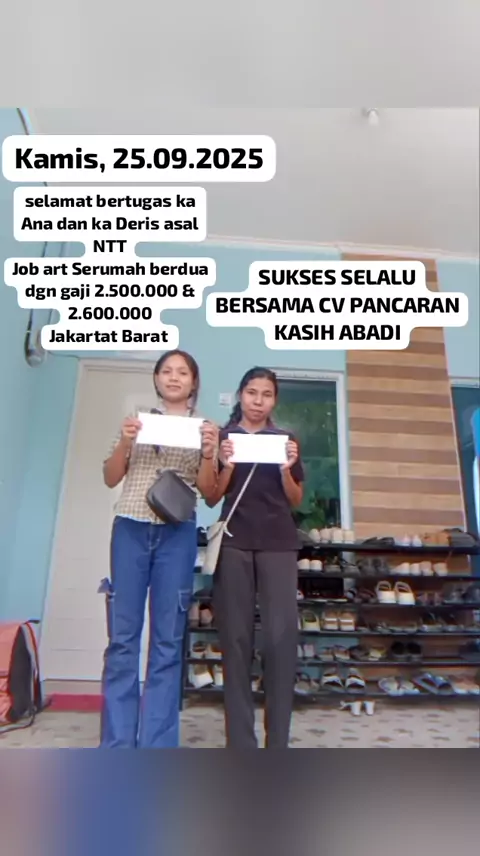 Kamis, 25.09.2025
selamat bertugas ka
Ana dan ka Deris asal
NTT
Job art Serumah berdua
dgn gaji 2.500.000 &
2.600.000
Jakartat Barat
SUKSES SELALU
BERSAMA CV PANCARAN
KASIH ABADI